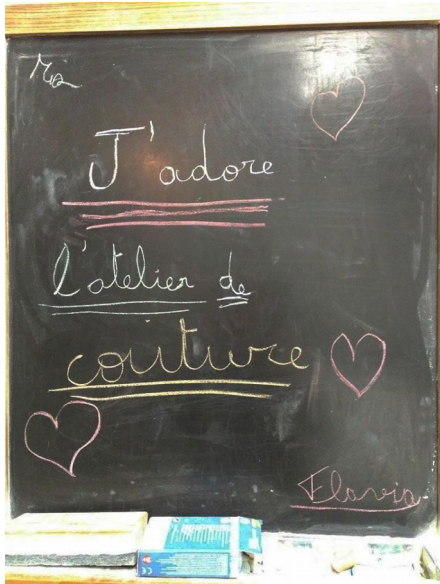 J'adore
l'atelier de
couture
Flavia